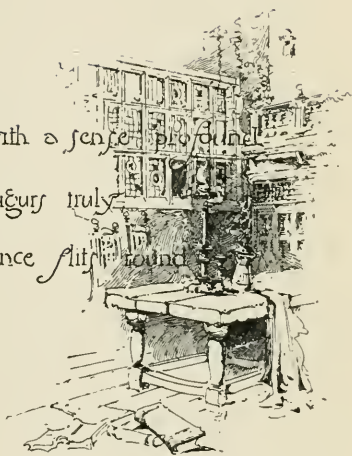 ith a sense profound
ugurs truly
nce flits round